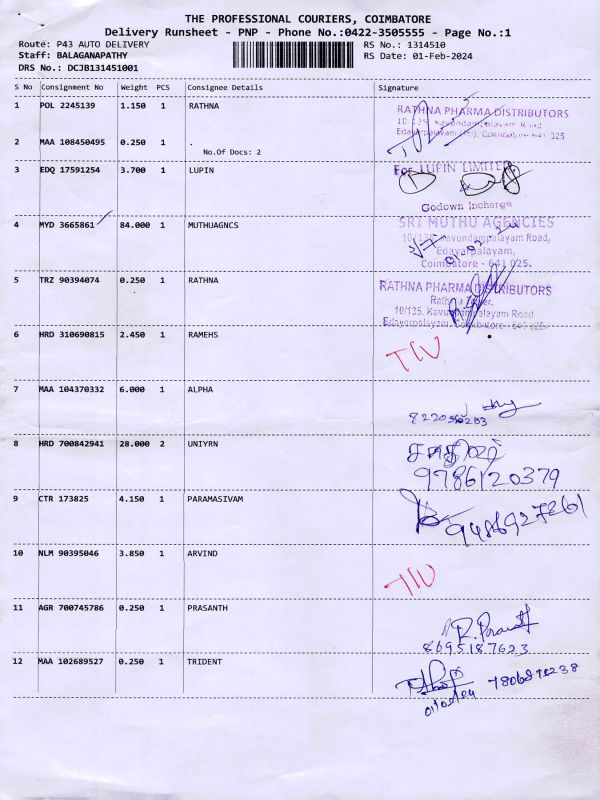 THE PROFESSIONAL COURIERS, COIMBATORE
Delivery Runsheet - PNP - Phone No.:0422-3505555 - Page No.:1
Route: P43 AUTO DELIVERY
RS No.: 1314510
Staff: BALAGANAPATHY
RS Date: 01-Feb-2024
DRS No.: DCJB131451001
S No Consignment No Weight PCS Consignee Details Signature
1 POL 2245139 1.150 1 RATHNA
RATHNA PHARMA DISTRIBUTORS
10/135, Kavundampalayam Road
Edayarpalayam (Po), Coimbatore-641 025
2 MAA 108450495 0.250 1 .
No.Of Docs: 2
3 EDQ 17591254 3.700 1 LUPIN
For LUPIN LIMITED,
Godown Incharge
4 MYD 3665861 84.000 1 MUTHUAGNCS
SRI MUTHU AGENCIES
10/135, Kavundampalayam Road,
Edayarpalayam,
Coimbatore - 641 025.
5 TRZ 90394074 0.250 1 RATHNA
RATHNA PHARMA DISTRIBUTORS
10/135, Kavundampalayam Road
Edayarpalayam, Coimbatore - 641 025
6 HRD 310690815 2.450 1 RAMEHS
7 MAA 104370332 6.000 1 ALPHA
8 HRD 700842941 28.000 2 UNIYRN
9786120379
9 CTR 173825 4.150 1 PARAMASIVAM
9486927261
10 NLM 90395046 3.850 1 ARVIND
11 AGR 700745786 0.250 1 PRASANTH
8695187623
12 MAA 102689527 0.250 1 TRIDENT